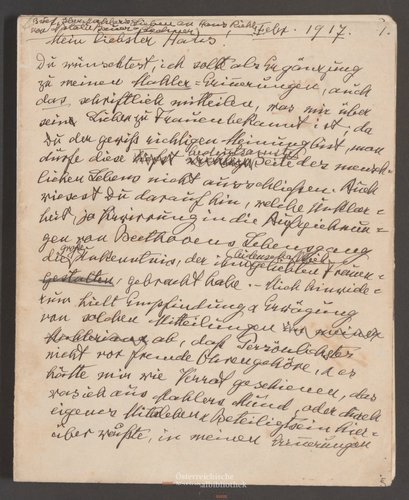 Brief über Mahlers Lieben an Hans Riehl
von Natalie Bauer-Lechner
Febr. 1917.
1.
Mein liebster Hans!
Du wünschtest, ich sollte als Ergänzung
zu meinen Mahler-Erinnerungen, auch
das schriftlich mitteilen, was mir über
seine Liebe zu Frauen bekannt ist, da
Du der gewiss richtigen Meinung bist, man
dürfe diese bedeutsamste Seite des mensch-
lichen Lebens nicht ausschließen. Auch
wiesest Du darauf hin, welche Unklar-
heit, ja Verwirrung in die Aufzeichnun-
gen von Beethovens Lebensgang
die Unkenntnis, der geliebten Frauen-
Gestalten, gebracht habe. – Mich hinwide-
rum hielt Empfindung & Erwägung
von solchen Mitteilungen
ab, daß Persönlichstes
nicht vor fremde Ohren gehöre, & es
hätte mir wie Verrat geschienen, das
was ich aus Mahlers Mund, oder durch
eigenes Miterleben & Beteiligtsein hier-
über wußte, in meinen Erinnerungen
Österreichische
Nationalbibliothek